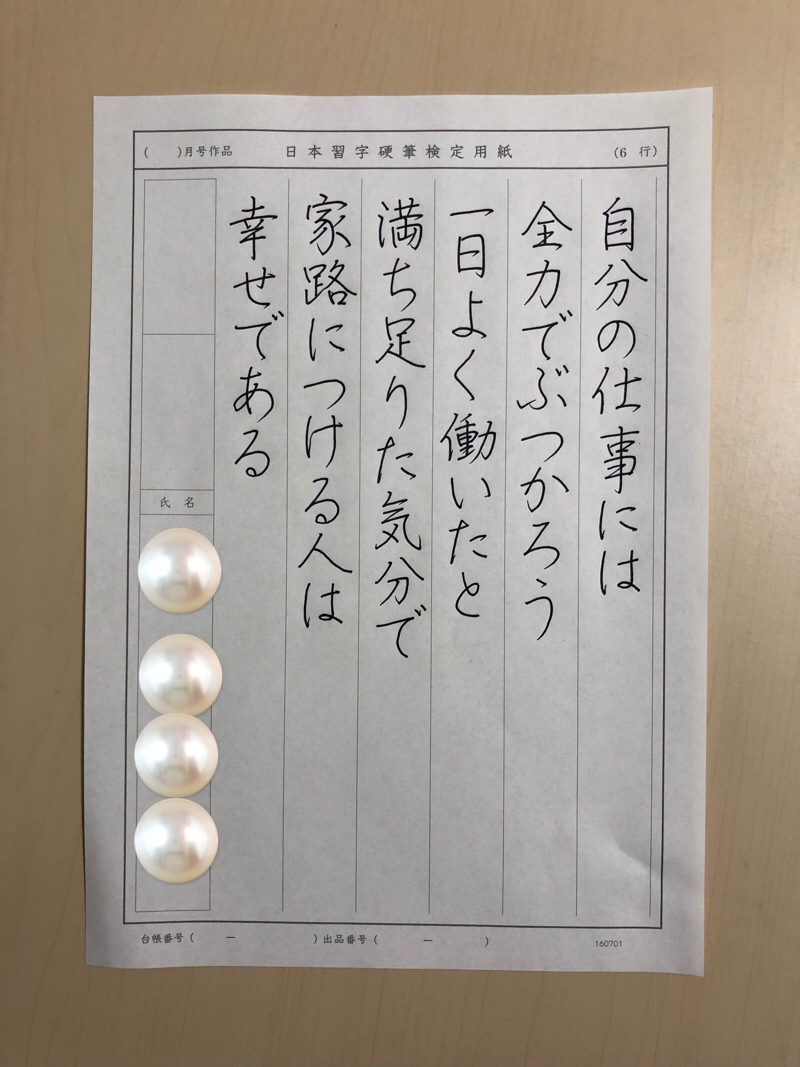 ( )月号作品 日本習字硬筆検定用紙 (6 行)
自分の仕事には
全力でぶつかろう
一日よく働いたと
満ち足りた気分で
家路につける人は
幸せである
氏名
台帳番号( ー )出品番号( ー )
160701